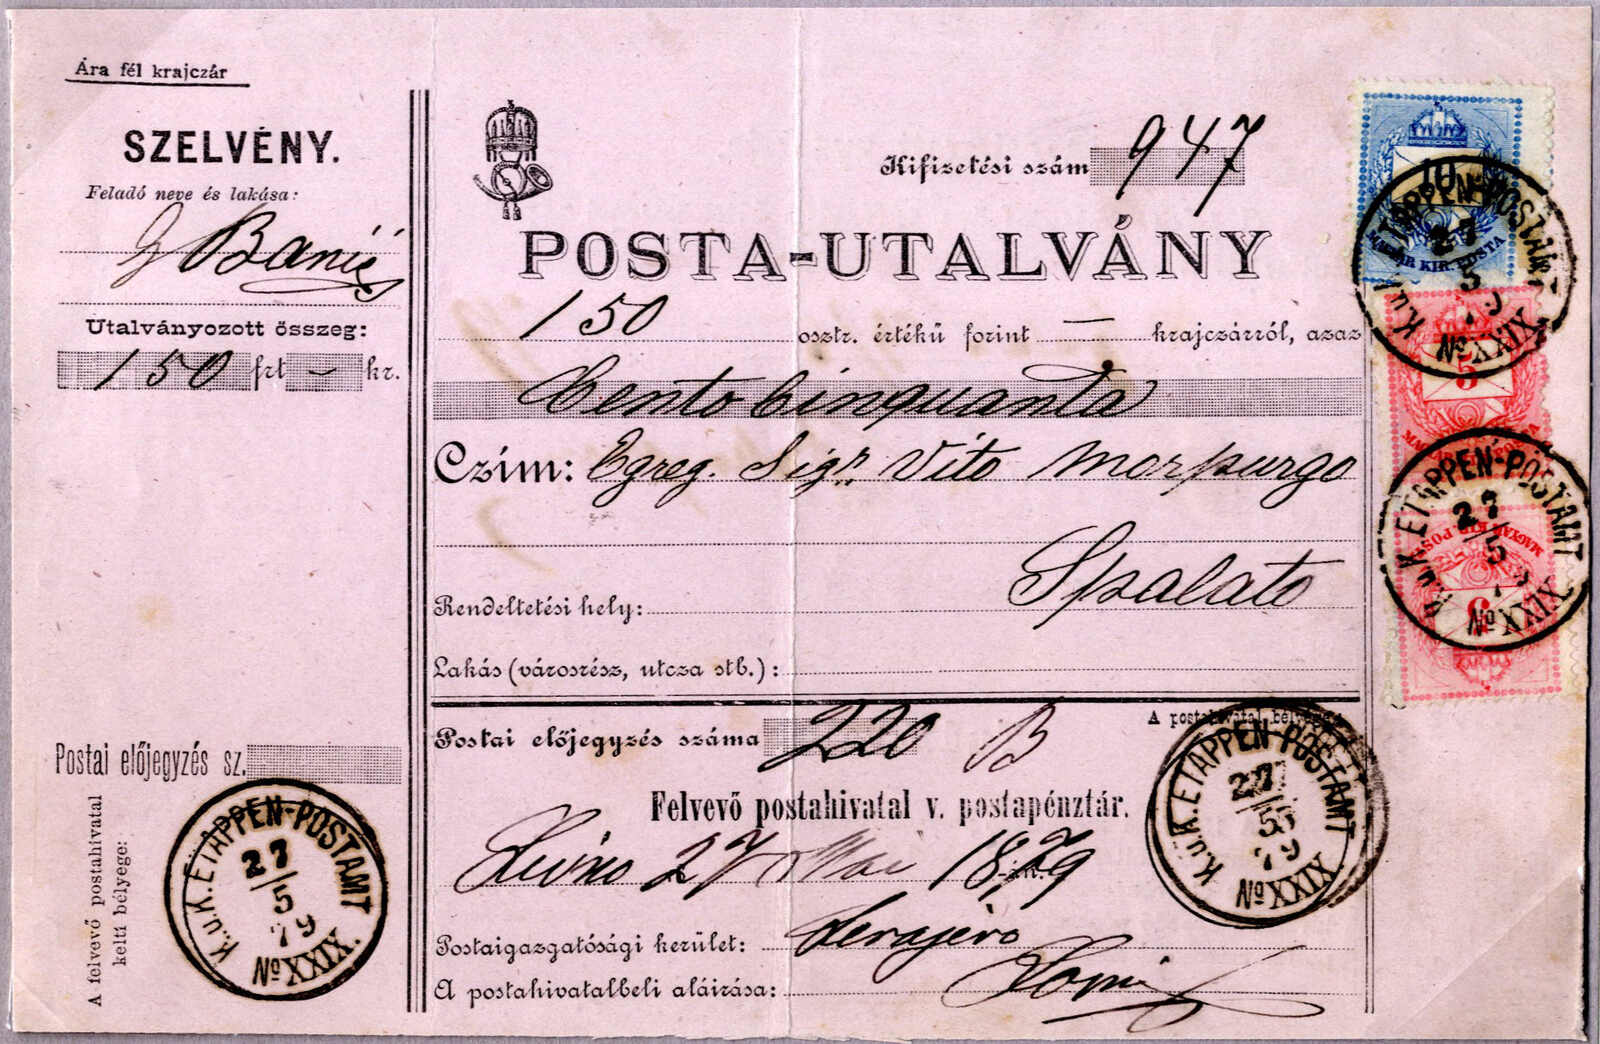 Ára fél krajczár
SZELVÉNY.
Feladó neve és lakása:
Utalványozott összeg:
150 frt — kr.
Postai előjegyzés sz.
A felvevő postahivatal
kelti bélyege:
K.u.K. ETAPPEN-POSTAMT
27/5
79
No XXIX.
Kifizetési szám 947
POSTA-UTALVÁNY
150 osztr. értékű forint — krajczárról, azaz
Cento Cinquanta
Czím: Egreg. Sigr. Vito Morpurgo
Rendeltetési hely: Spalato
Lakás (városrész, utcza stb.):
Postai előjegyzés száma 220 B
A postahivatal
Felvevő postahivatal v. postapénztár.
Livno 27 Mai 1879
Postaigazgatósági kerület: Serajevo
A postahivatalbeli aláirása:
K.u.K. ETAPPEN-POSTAMT
27/5
79
No XXIX
10
MAGYAR KIR. POSTA
K.u.K. ETAPPEN-POSTAMT
27
5
79
No XXIX
5
K.u.K. ETAPPEN-POSTAMT
27/5
No XXIX
MAGYAR KIR. POSTA
5